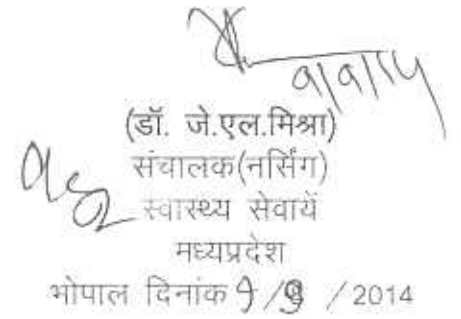 9/9/14
(डॉ. जे.एल.मिश्रा)
संचालक(नर्सिंग)
स्वास्थ्य सेवायें
मध्यप्रदेश
भोपाल दिनांक 9 /9 / 2014